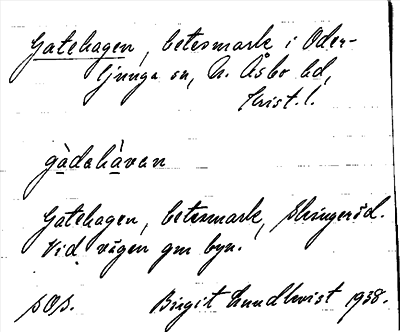 Gatehagen, betesmark i Oder-
ljunga sn, N. Åsbo hd,
Krist. l.
gàdahàvan
Gatehagen, betesmark, Slingeröd.
Vid vägen gm byn.
SOS. Birgit Lundkvist 1938.